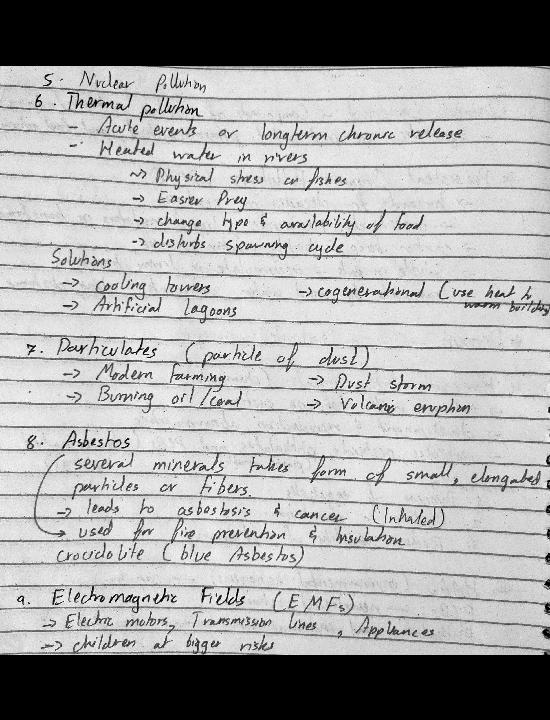 5. Nuclear Pollution
6. Thermal pollution
- Acute events or longterm chronic release
- Heated water in rivers
→ Physical stress on fishes
→ Easier Prey
→ change type & availability of food
→ disturbs spawning cycle
Solutions
→ cooling towers → cogenerational (use heat to warm building
→ Artificial lagoons
7. Particulates (particle of dust)
→ Modern farming → Dust storm
→ Burning oil/coal → Volcanic eruption
8. Asbestos
several minerals takes form of small, elongated
particles or fibers.
→ leads to asbostosis & cancer (Inhaled)
→ used for fire prevention & Insulation
crocidolite (blue Asbestos)
9. Electromagnetic Fields (EMFs)
→ Electric motors, Transmission lines, Appliances
→ children at bigger risks